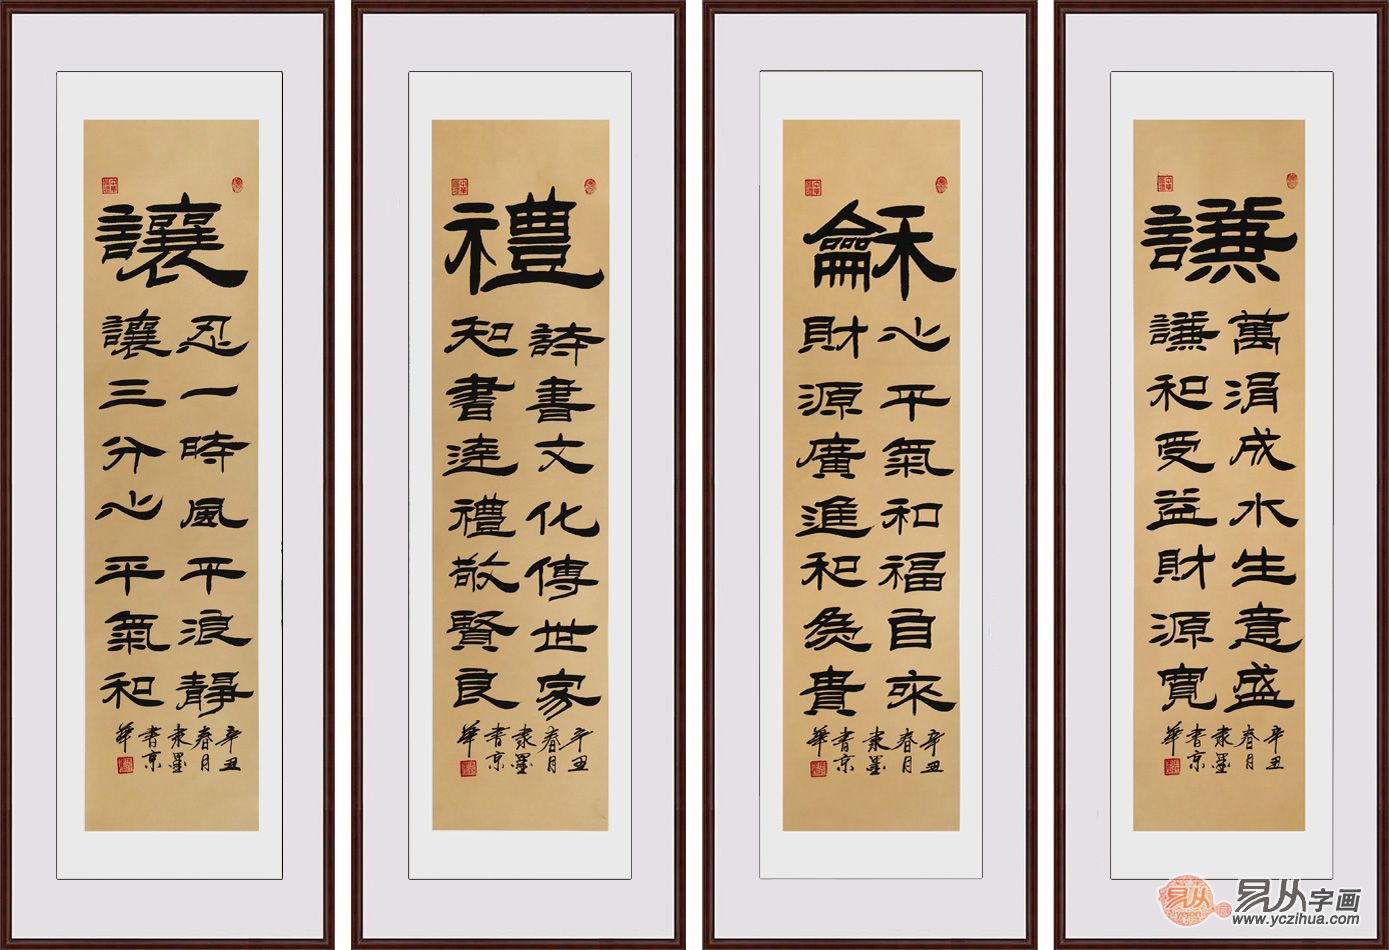 謙
萬涓成水生意盛
謙和受益財源寬
辛丑
春月
隶墨
書京
華
龢
心平氣和福自來
財源廣進和為貴
辛丑
春月
隶墨
書京
華
禮
詩書文化傳世家
知書達禮敬賢良
辛丑
春月
隶墨
書京
華
讓
忍一時風平浪靜
讓三分心平氣和
辛丑
春月
隶墨
書京
華
易从
yicong
易从字画
www.yczihua.com